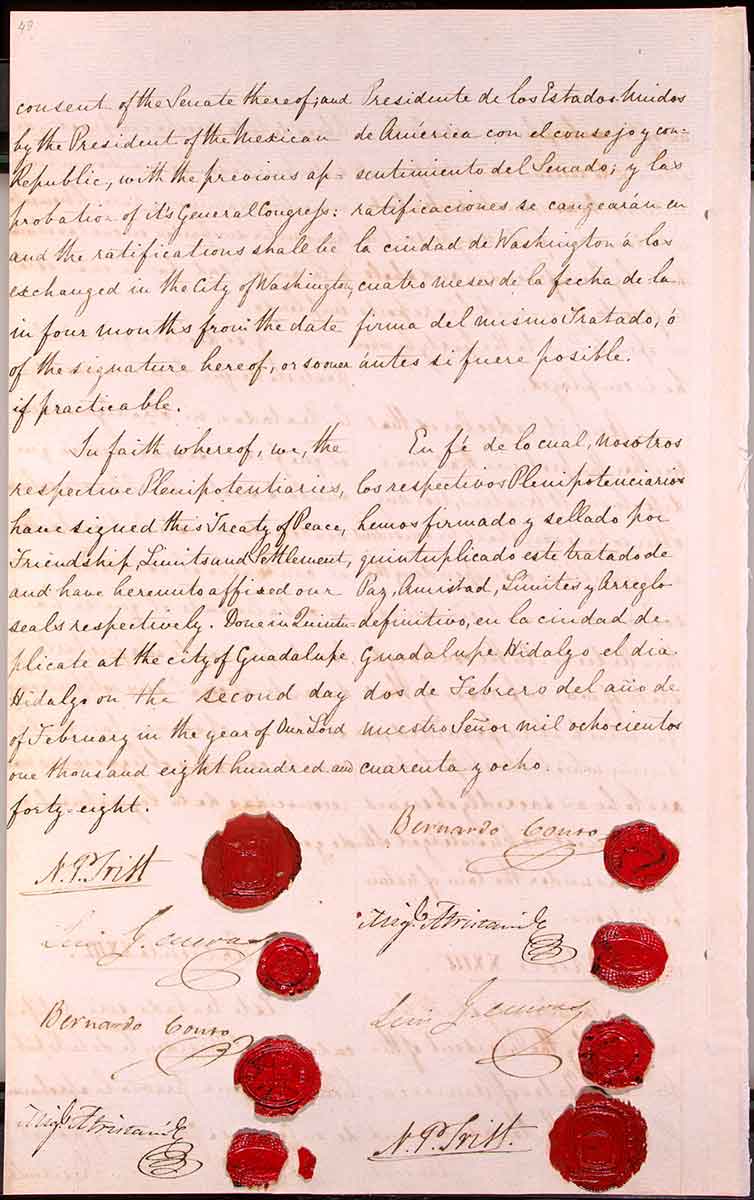 consent of the Senate thereof; and
by the President of the Mexican
Republic, with the previous ap=
probation of it's General Congress:
and the ratifications shall be
exchanged in the City of Washington,
in four months from the date
of the signature hereof, or sooner
if practicable.
In faith whereof, we, the
respective Plenipotentiaries,
have signed this Treaty of Peace,
Friendship, Limits and Settlement,
and have hereunto affixed our
seals respectively. Done in Quintu-
plicate at the city of Guadalupe
Hidalgo on the second day
of February in the year of Our Lord
one thousand eight hundred and
forty-eight.
N. P. Trist
Luis G. Cuevas
Bernardo Couto
Migl. Atristain
Presidente de los Estados Unidos
de América con el consejo y con=
sentimiento del Senado; y las
ratificaciones se cangearán en
la ciudad de Washington á los
cuatro meses de la fecha de la
firma del mismo Tratado, ó
ántes si fuere posible.
En fé de lo cual, nosotros
los respectivos Plenipotenciarios
hemos firmado y sellado por
quintuplicado este tratado de
Paz, Amistad, Límites y Arreglo
definitivo, en la ciudad de
Guadalupe Hidalgo el dia
dos de Febrero del año de
nuestro Señor mil ochocientos
cuarenta y ocho.
Bernardo Couto
Migl. Atristain
Luis G. Cuevas
N. P. Trist.